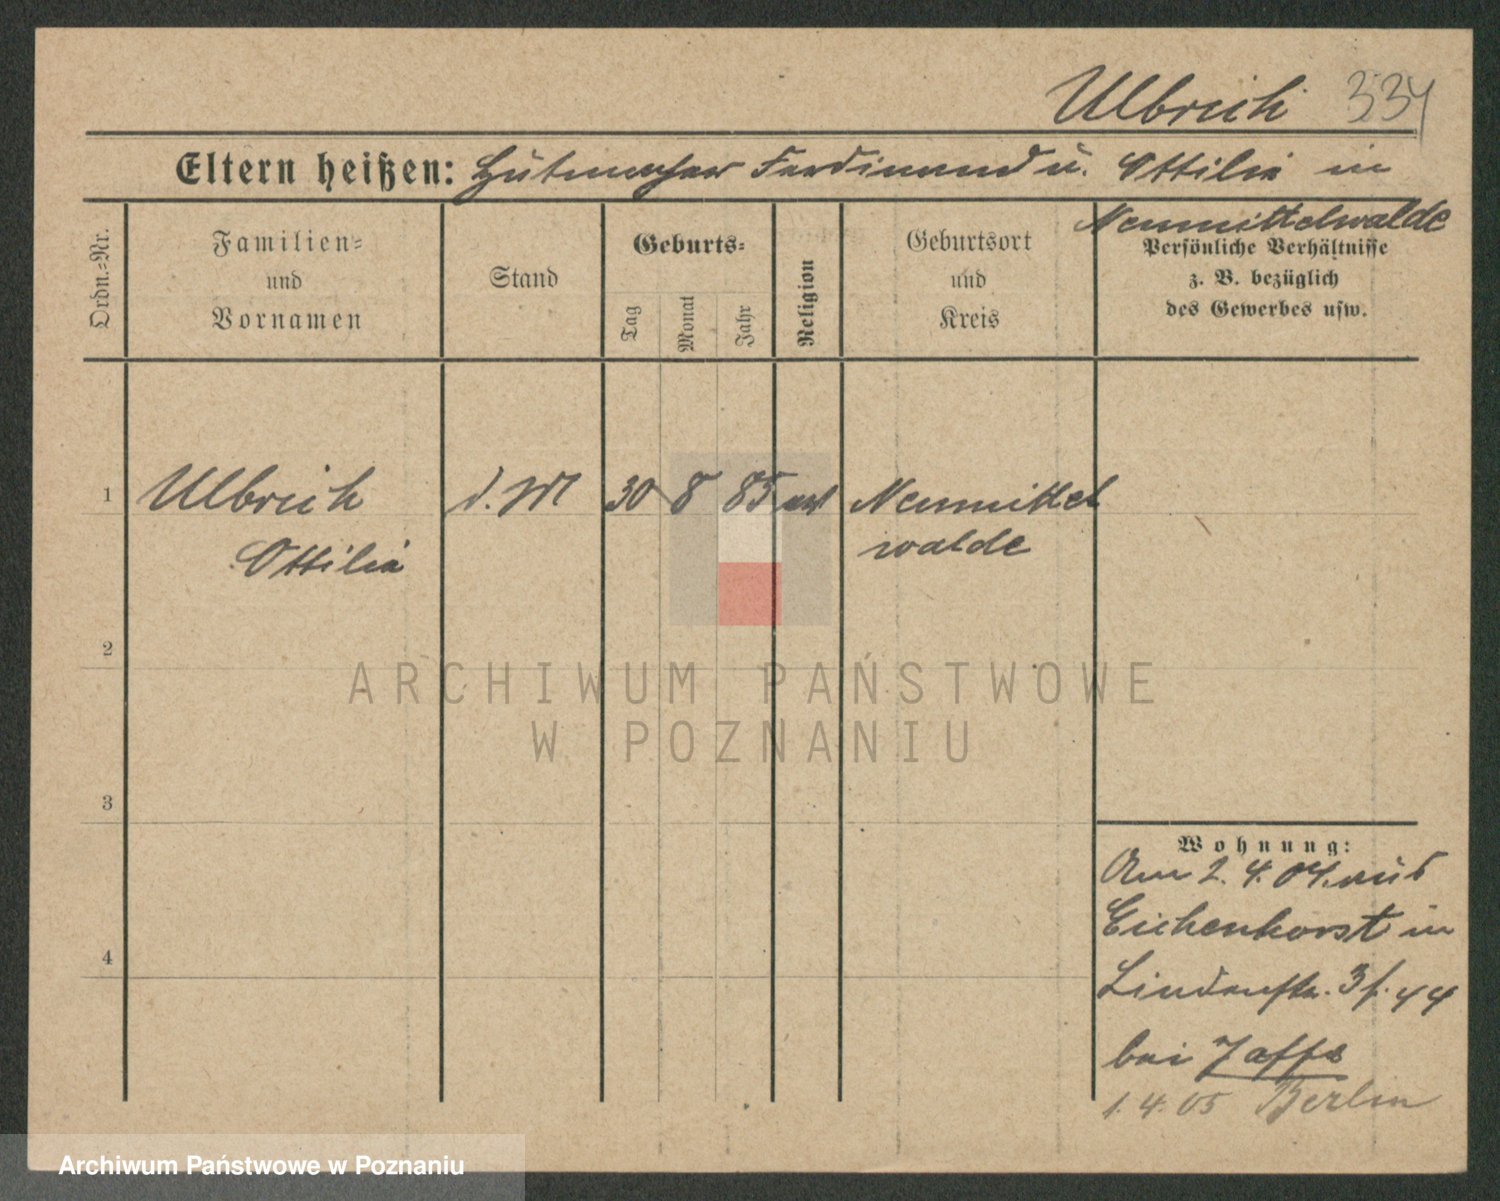 Ulbrich 334
Eltern heißen: Hutmacher Ferdinand u. Ottilie in
Neumittelwalde
Ordn.=Nr.
Familien=
und
Vornamen
Stand
Geburts=
Tag
Monat
Jahr
Religion
Geburtsort
und
Kreis
Persönliche Verhältnisse
z. B. bezüglich
des Gewerbes usw.
1 Ulbrich d. M 30 8 85 ev Neumittel
Ottilie walde
2
3
4
Wohnung:
Am 2. 4. 04. aus
Eichenhorst in
Lindenstr. 3
bei Jaffe
1. 4. 05 Berlin
ARCHIWUM PAŃSTWOWE
W POZNANIU
Archiwum Państwowe w Poznaniu